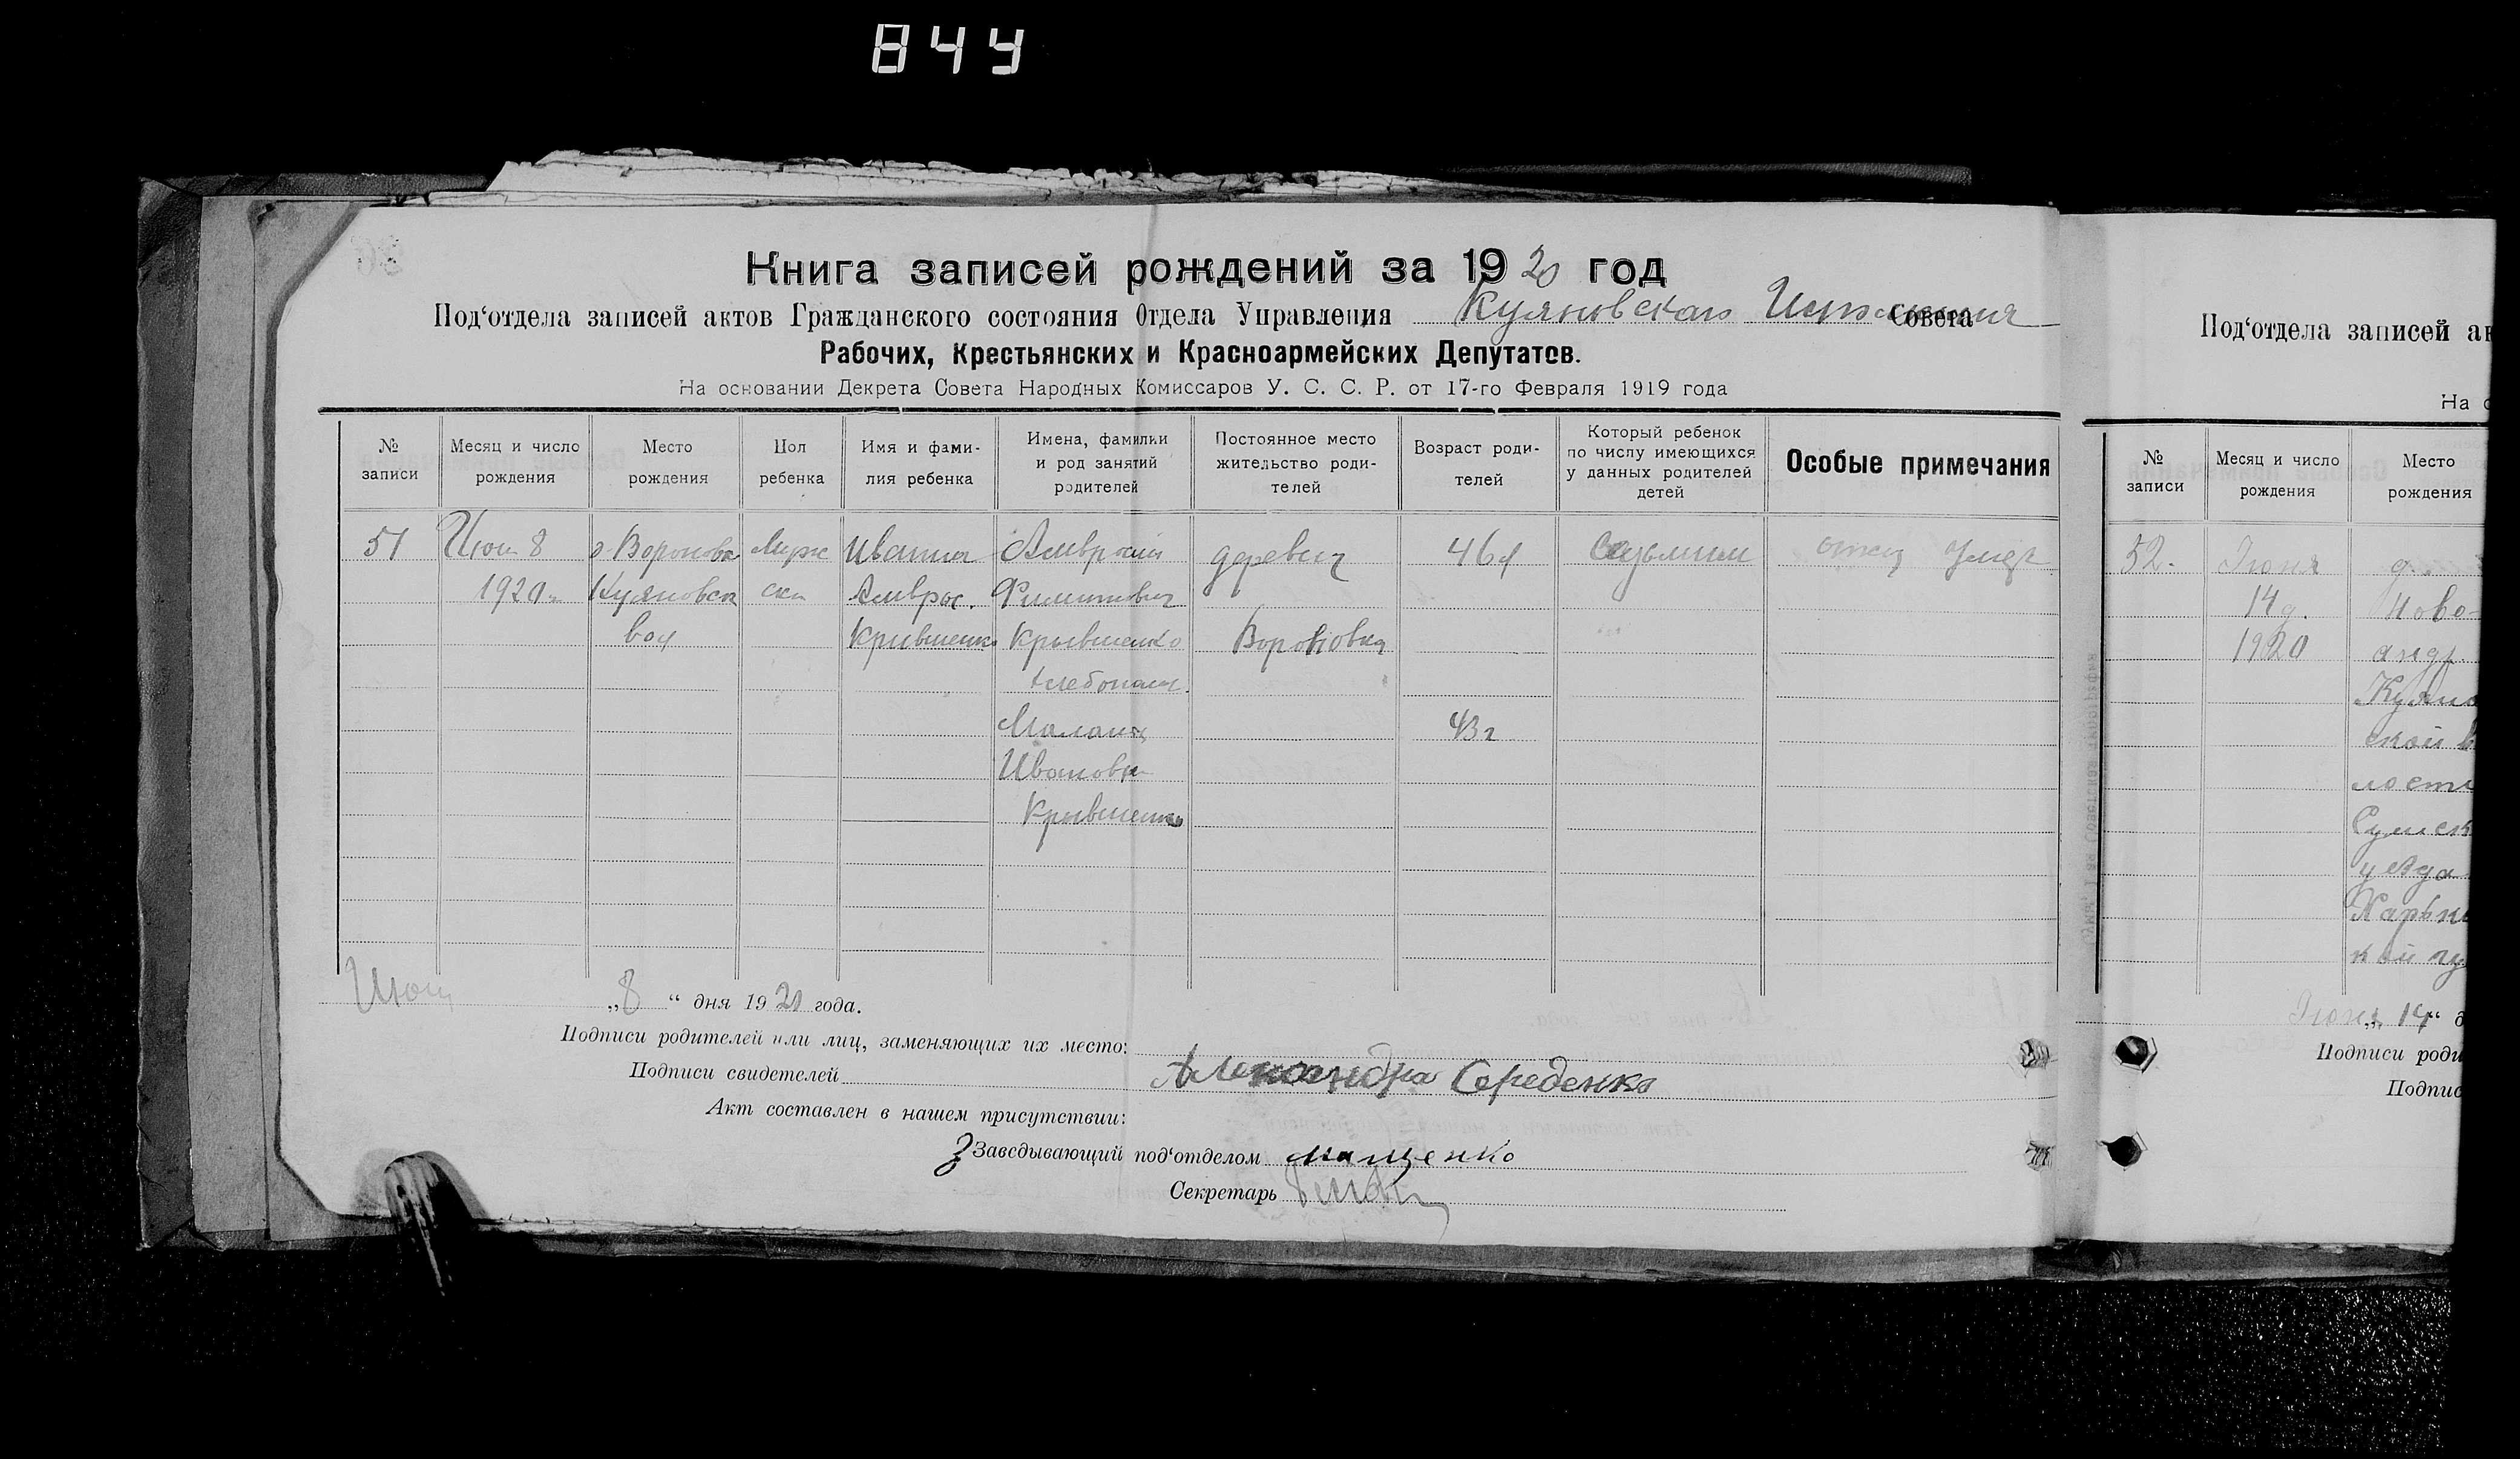 844
Книга записей рождений за 1920 год
Под‘отдела записей актов Гражданского состояния Отдела Управления Куяновская Совета
Рабочих, Крестьянских и Красноармейских Депутатов.
На основании Декрета Совета Народных Комиссаров У. С. С. Р. от 17-го Февраля 1919 года
№ записи
Месяц и число рождения
Место рождения
Пол ребенка
Имя и фами-
лия ребенка
Имена, фамилии
и род занятий
родителей
Постоянное место
жительство роди-
телей
Возраст роди-
телей
Который ребенок
по числу имеющихся
у данных родителей
детей
Особые примечания
51
8
1920
Куяновск
вол
Амврос.
Крывшенко
Амвросий
Крывшенко
хлебопаш.
Маланя
Ивановна
Крывшенко
деревня
46
43 г
отец умер
„8“ дня 1920 года.
Подписи родителей или лиц, заменяющих их место:
Подписи свидетелей Александра Середенко
Акт составлен в нашем присутствии:
Заведывающий под‘отделом Мащенко
Секретарь
Под‘отдела записей ак
На о
№ записи
Месяц и число рождения
Место рождения
52.
Июня
14 д.
1920
д.
Ново-
андр.
Куяно
ской в
лости
Сумск
уезда
Харьк
кой гу
Июня „14“ д
Подписи роди
Подпис